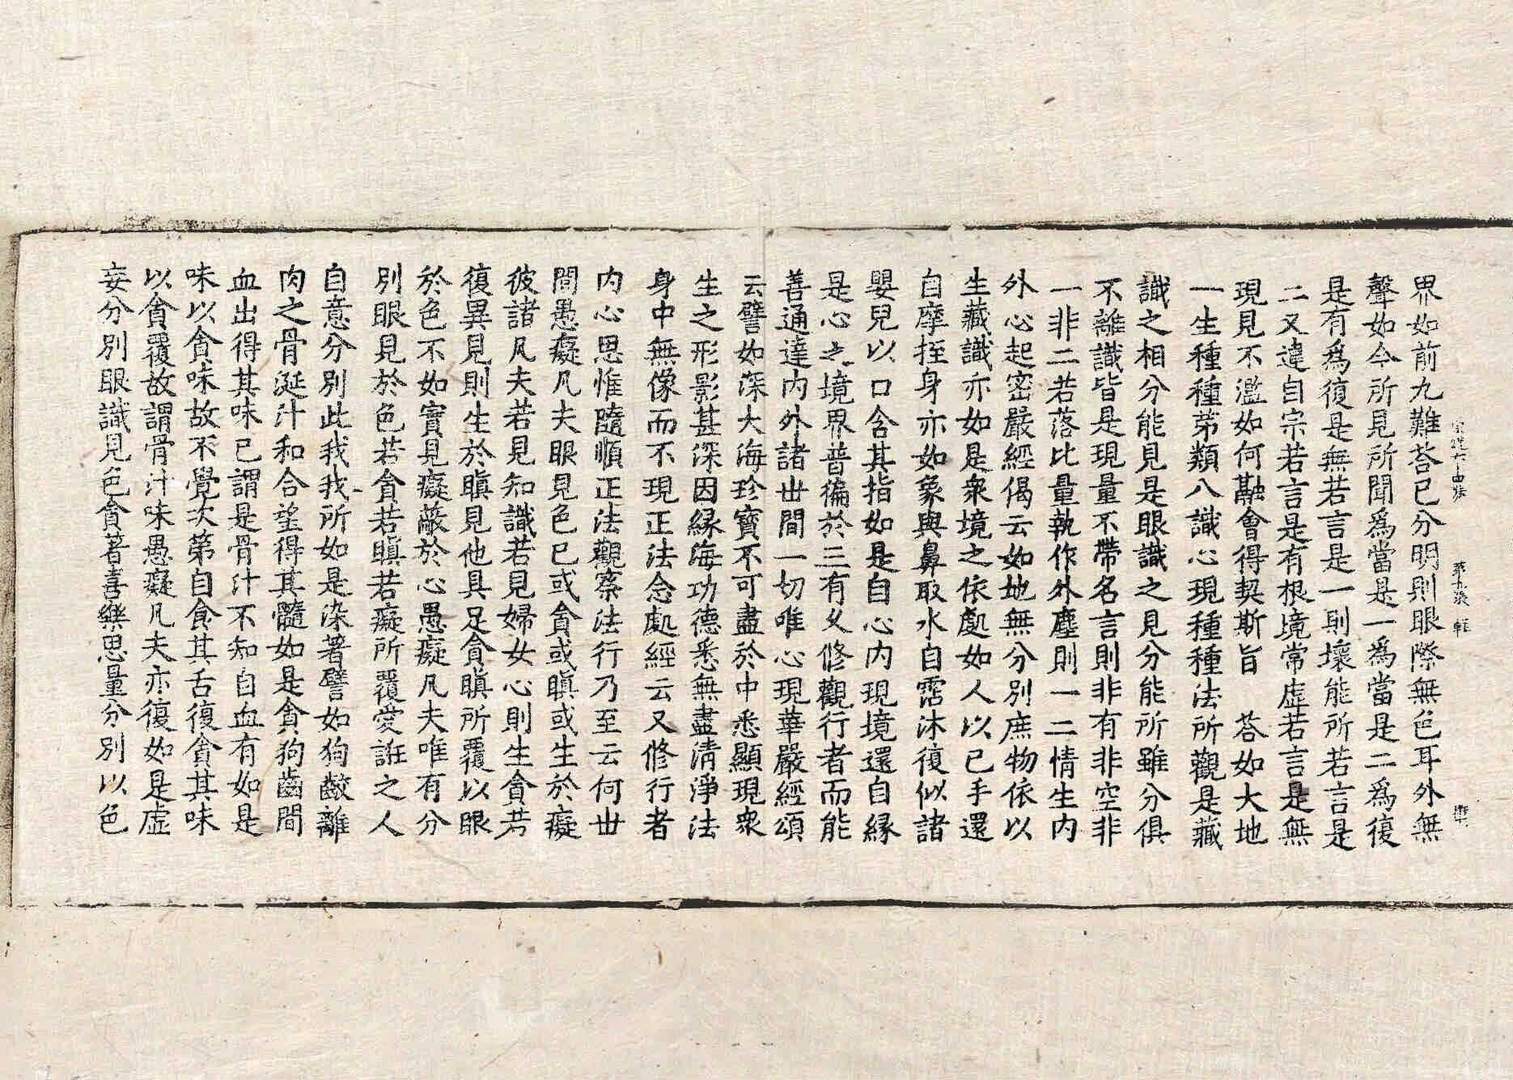 界如前九難荅已分明則眼際無色耳外無
聲如今所見所聞爲當是一爲當是二爲復
是有爲復是無若言是一則壞能所若言是
二又違自宗若言是有根境常虛若言是無
現見不濫如何融會得契斯旨　荅如大地
一生種種苐類八識心現種種法所觀是藏
識之相分能見是眼識之見分能所雖分俱
不離識皆是現量不帶名言則非有非空非
一非二若落比量執作外塵則一二情生内
外心起密嚴經偈云如地無分別庶物依以
生藏識亦如是衆境之依處如人以己手還
自摩挃身亦如象與鼻取水自霑沐復似諸
嬰兒以口含其指如是自心内現境還自緣
是心之境界普徧於三有久修觀行者而能
善通達内外諸世間一切唯心現華嚴經頌
云譬如深大海珍寶不可盡於中悉顯現衆
生之形影甚深因緣海功德悉無盡清淨法
身中無像而不現正法念處經云又修行者
内心思惟隨順正法觀察法行乃至云何世
間愚癡凡夫眼見色已或貪或瞋或生於癡
彼諸凡夫若見知識若見婦女心則生貪若
復異見則生於瞋見他具足貪瞋所覆以眼
於色不如實見癡蔽於心愚癡凡夫唯有分
別眼見於色若貪若瞋若癡所覆愛誑之人
自意分別此我我所如是染著譬如狗齩離
肉之骨涎汁和合望得其髓如是貪狗齒間
血出得其味已謂是骨汁不知自血有如是
味以貪味故不覺次第自食其舌復貪其味
以貪覆故謂骨汁味愚癡凡夫亦復如是虛
妄分別眼識見色貪著喜樂思量分別以色